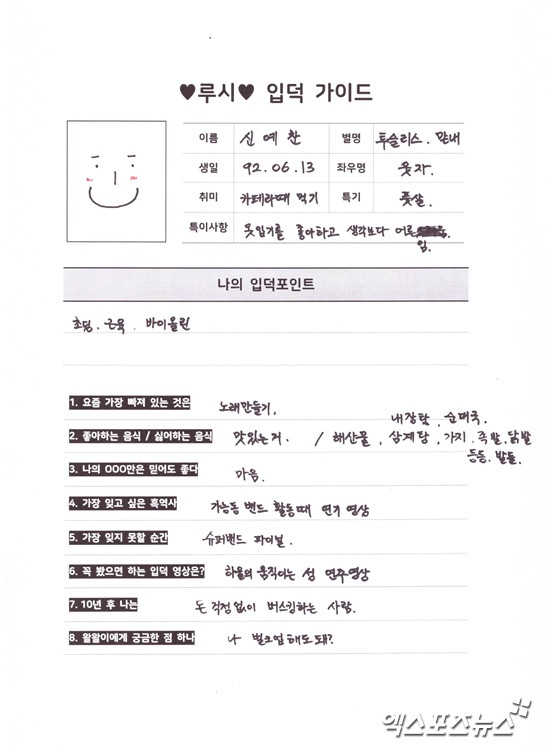 ♥루시♥ 입덕 가이드
이름 신예찬 별명 투슬리스. 막내
생일 92.06.13 좌우명 웃자.
취미 카페라떼 먹기 특기 풋살.
특이사항 옷입기를 좋아하고 생각보다 어른
임.
나의 입덕포인트
초딩. 근육. 바이올린
1. 요즘 가장 빠져 있는 것은 노래만들기.
내장탕, 순대국.
2. 좋아하는 음식 / 싫어하는 음식 맛있는거. / 해산물, 삼계탕, 가지. 족발, 닭발
등등. 발들.
3. 나의 OOO만은 믿어도 좋다 마음.
4. 가장 잊고 싶은 흑역사 가능동 밴드 활동때 연기 영상
5. 가장 잊지 못할 순간 슈퍼밴드 파이널.
6. 꼭 봤으면 하는 입덕 영상은? 하울의 움직이는 성 연주영상
7. 10년 후 나는 돈 걱정없이 버스킹하는 사람.
8. 왈왈이에게 궁금한 점 하나 나 벌크업해도돼?
엑스포츠뉴스